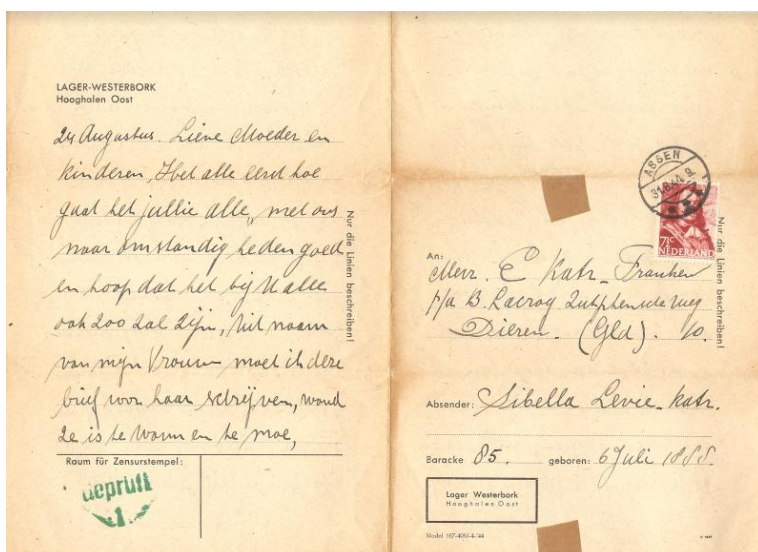 LAGER-WESTERBORK
Hooghalen Oost
24 Augustus. Lieve Moeder en
kinderen, Het alle eerst hoe
gaat het jullie alle, met ons
naar omstandig heden goed
en hoop dat het bij U alle
ook zoo zal zijn, Uit naam
van mijn Vrouw moet ik deze
brief voor haar schrijven, want
ze is te warm en te moe,
Nur die Linien beschreiben!
Raum für Zensurstempel:
Geprüft
1
ASSEN
31.8.44
7½c
NEDERLAND
Nur die Linien beschreiben!
An:
Mevr. E Katz-Franken
p/a B. Zutphensche weg
Dieren. (Gld). 10.
Absender: Sibella Levie-Katz.
Baracke 85. geboren: 6 Juli 1888.
Lager Westerbork
Hooghalen Oost